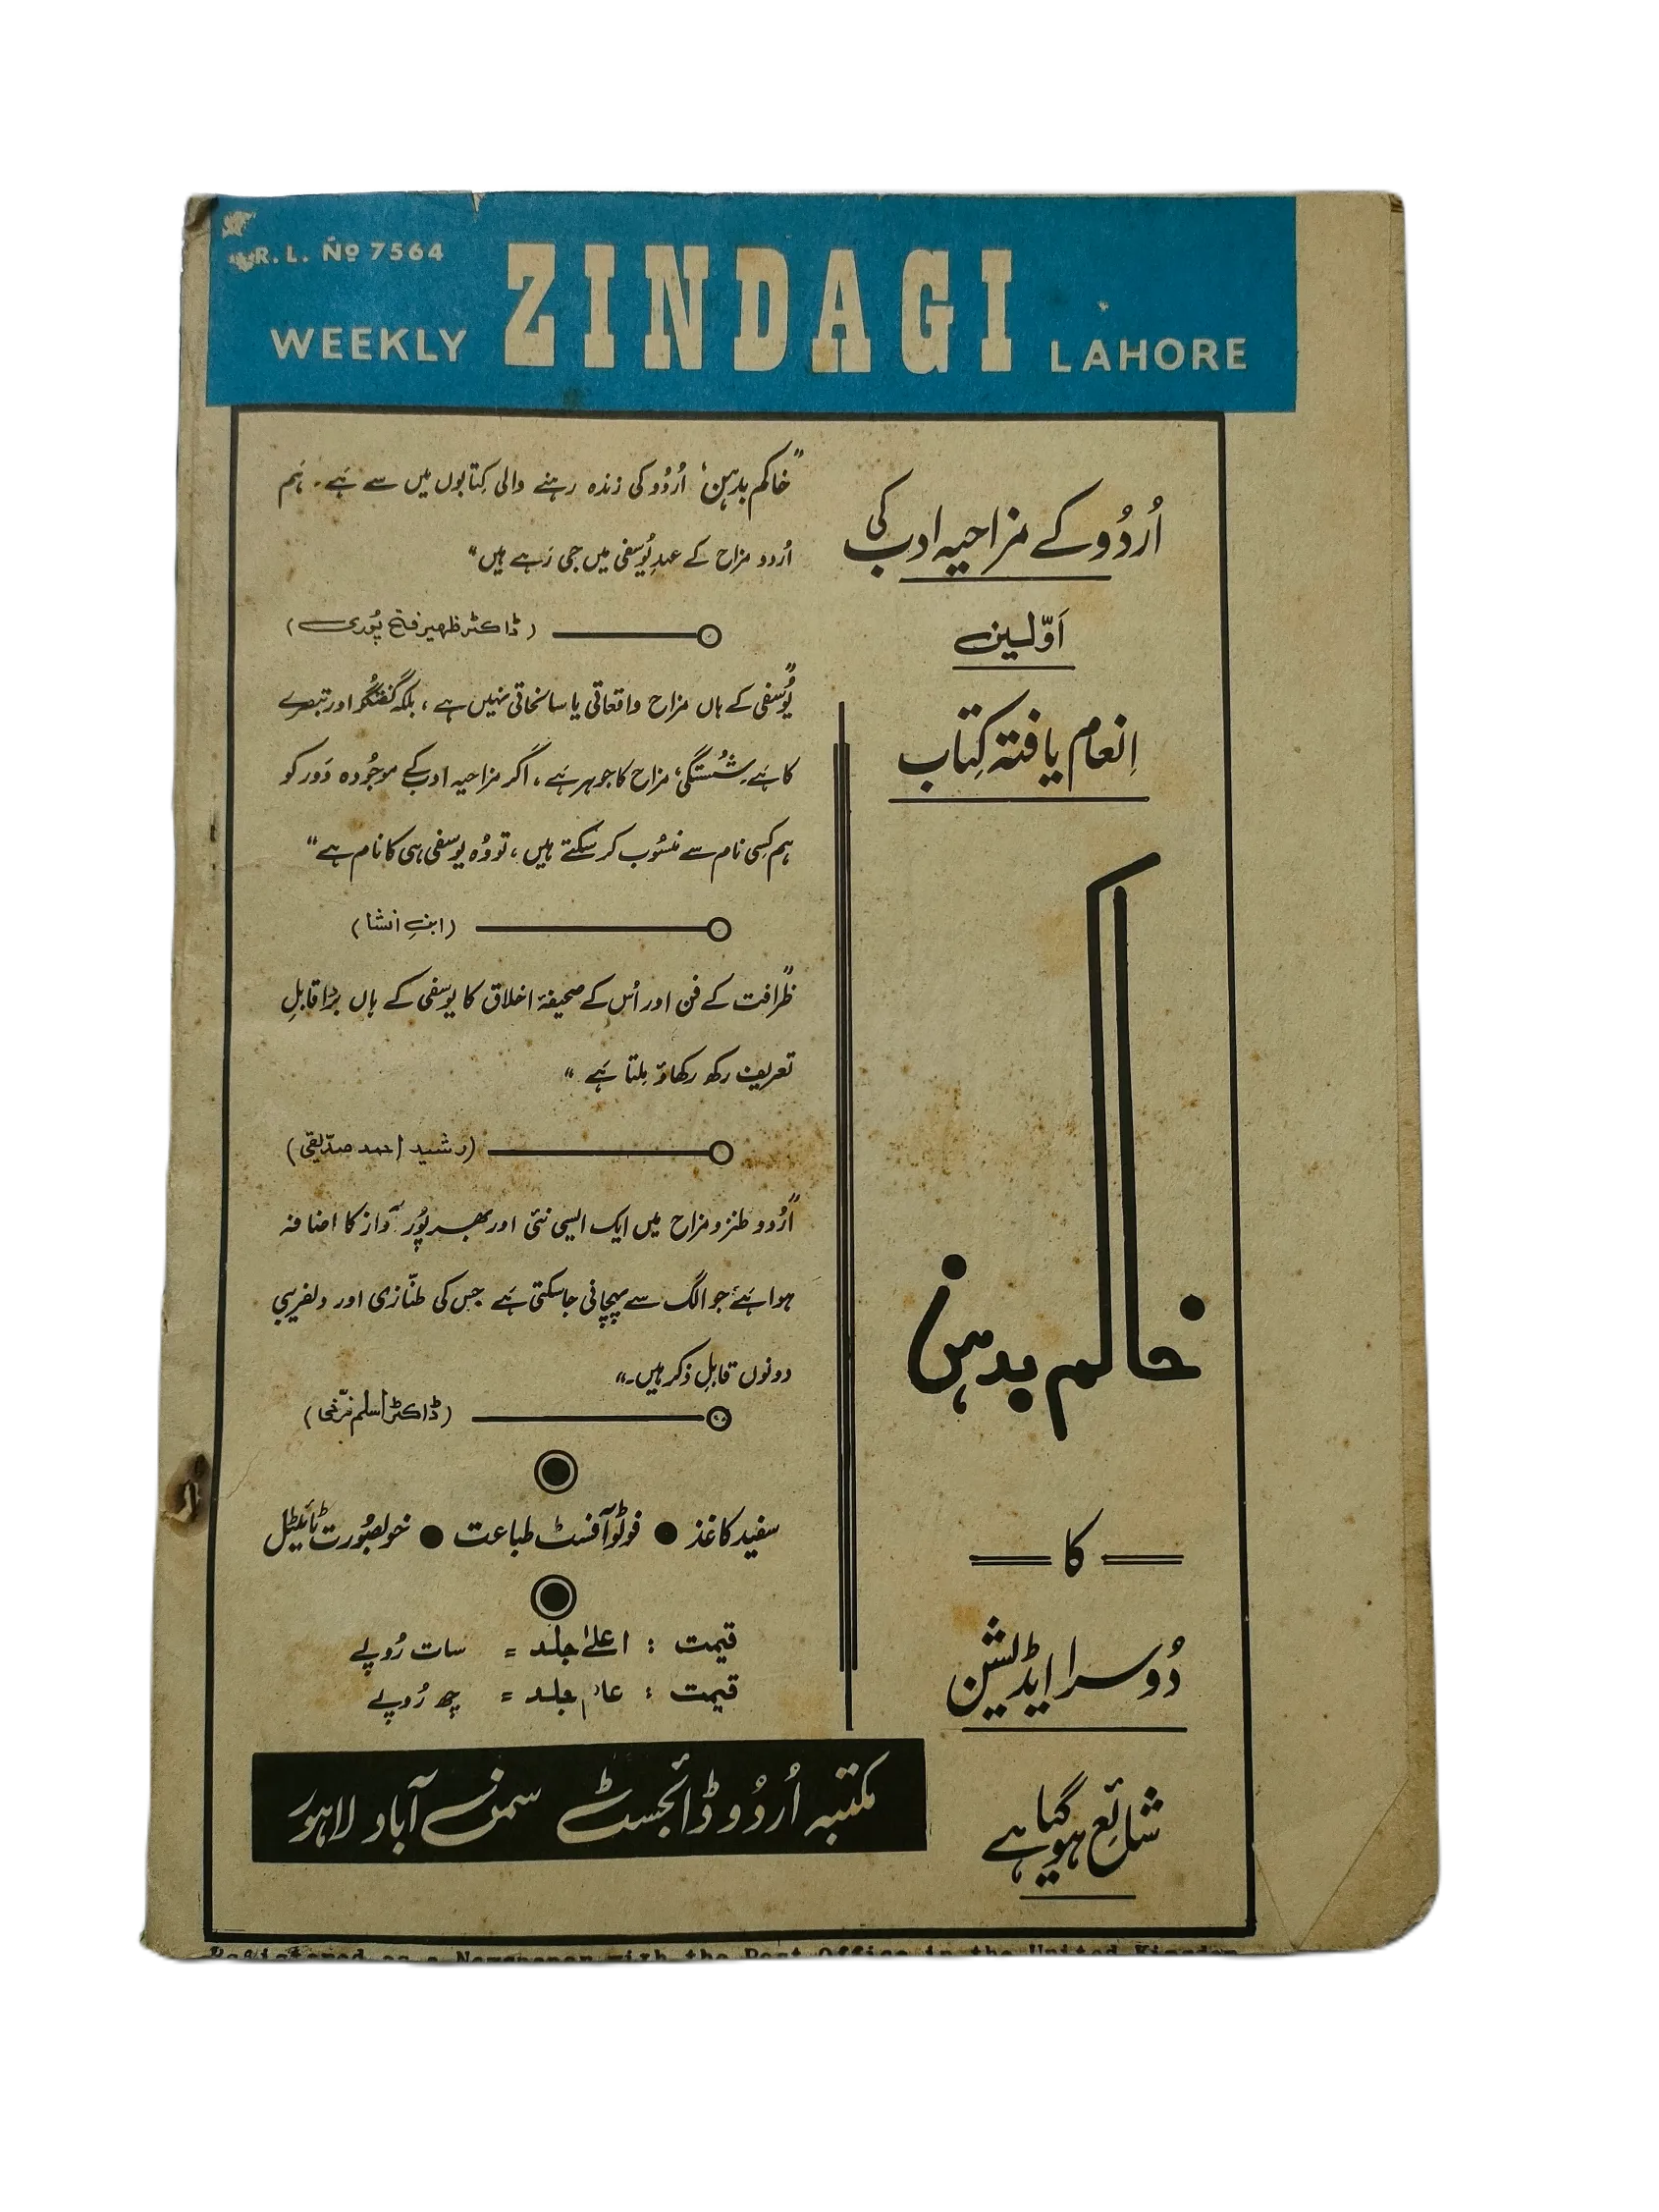 R. L. No 7564
WEEKLY ZINDAGI LAHORE
اُردُو کے مزاحیہ ادب کی
اَوّلین
اِنعام یافتہ کِتاب
خاکم بدہن
کا
دُوسرا ایڈیشن
شائع ہوگیا ہے
”خاکم بدہن‘ اُردُو کی زندہ رہنے والی کِتابوں میں سے ہے۔ ہَم
اُردو مزاح کے عہدِ یُوسفی میں جی رَہے ہیں“
(ڈاکٹر ظہیر فتح پُوری)
”یُوسفی کے ہاں مزاح واقعاتی یا سانحاتی نہیں ہے، بلکہ گفتگُو اور تبصرے
کا ہَے۔ شُستگی، مزاح کا جوہر ہَے۔ اگر مزاحیہ ادب کے موجُودہ دَور کو
ہم کِسی نام سے منسُوب کر سکتے ہیں، تو وُہ یوسفی ہی کا نام ہے“
(ابنِ انشا)
”ظرافت کے فن اور اُس کے صحیفۂ اخلاق کا یوسفی کے ہاں بڑا قابلِ
تعریف رکھ رکھاؤ مِلتا ہَے“
(رشید احمد صدّیقی)
”اُردو طنز و مزاح میں ایک ایسی نئی اور بھرپُور آواز کا اضافہ
ہوا ہَے، جو الگ سے پہچانی جا سکتی ہَے جس کی طنّازی اور دلفریبی
دونوں قابلِ ذکر ہیں۔“
(ڈاکٹر اسلم فرّخی)
سفید کاغذ ● فوٹو آفسٹ طباعت ● خوبصُورت ٹائیٹل
قیمت : اعلیٰ جلد = سات رُوپے
قیمت : عام جلد = چھ رُوپے
مکتبہ اُردُو ڈائجسٹ سمن آباد لاہور
Registered as a Newspaper with the Post Office in the United Kingdom